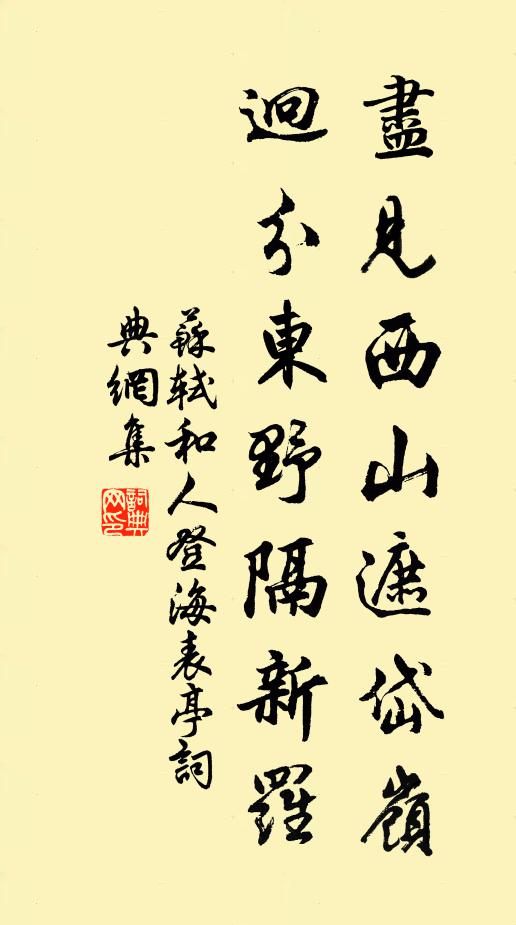 盡見西山遮岱嶺
迥分東野隔新羅
蘇軾和人登海表亭詞
典網集
詞典網印